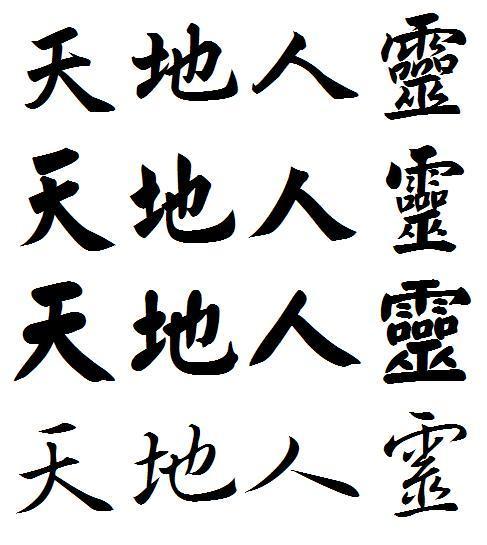 天地人靈
天地人靈
天地人靈
天地人霊